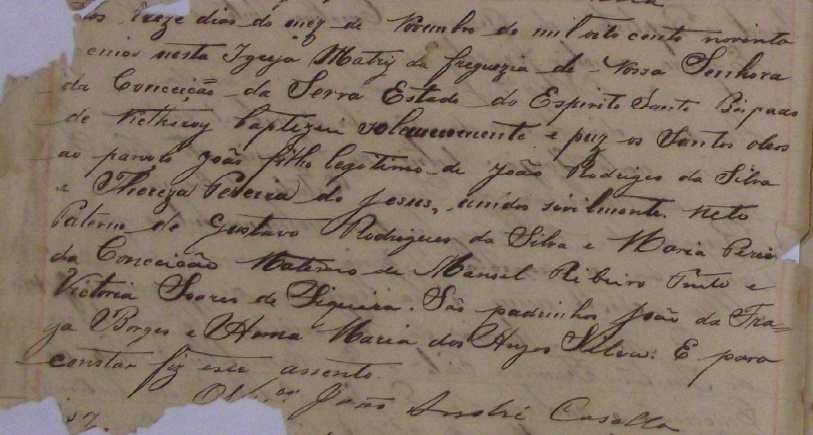 treze dias do mez de Novembro de mil oito cento noventa
nesta Igreja Matriz da freguezia de Nossa Senhora
da Conceição da Serra Estado do Espirito Santo Bispado
de Nictheroy baptizei solemnemente e puz os Santos oleos
ao parvolo João filho legitimo de João Rodrigues da Silva
e Thereza Pereira de Jesus, unidos sivilmente. Neto
Paterno de Gustavo Rodrigues da Silva e Maria
da Conceição Materno de Manoel Ribeiro Pinto e
Victoria Soares de Siqueira. São padrinhos João da
Borges e Anna Maria dos Anjos Silva. E para
constar fiz este assento.
João André Casella